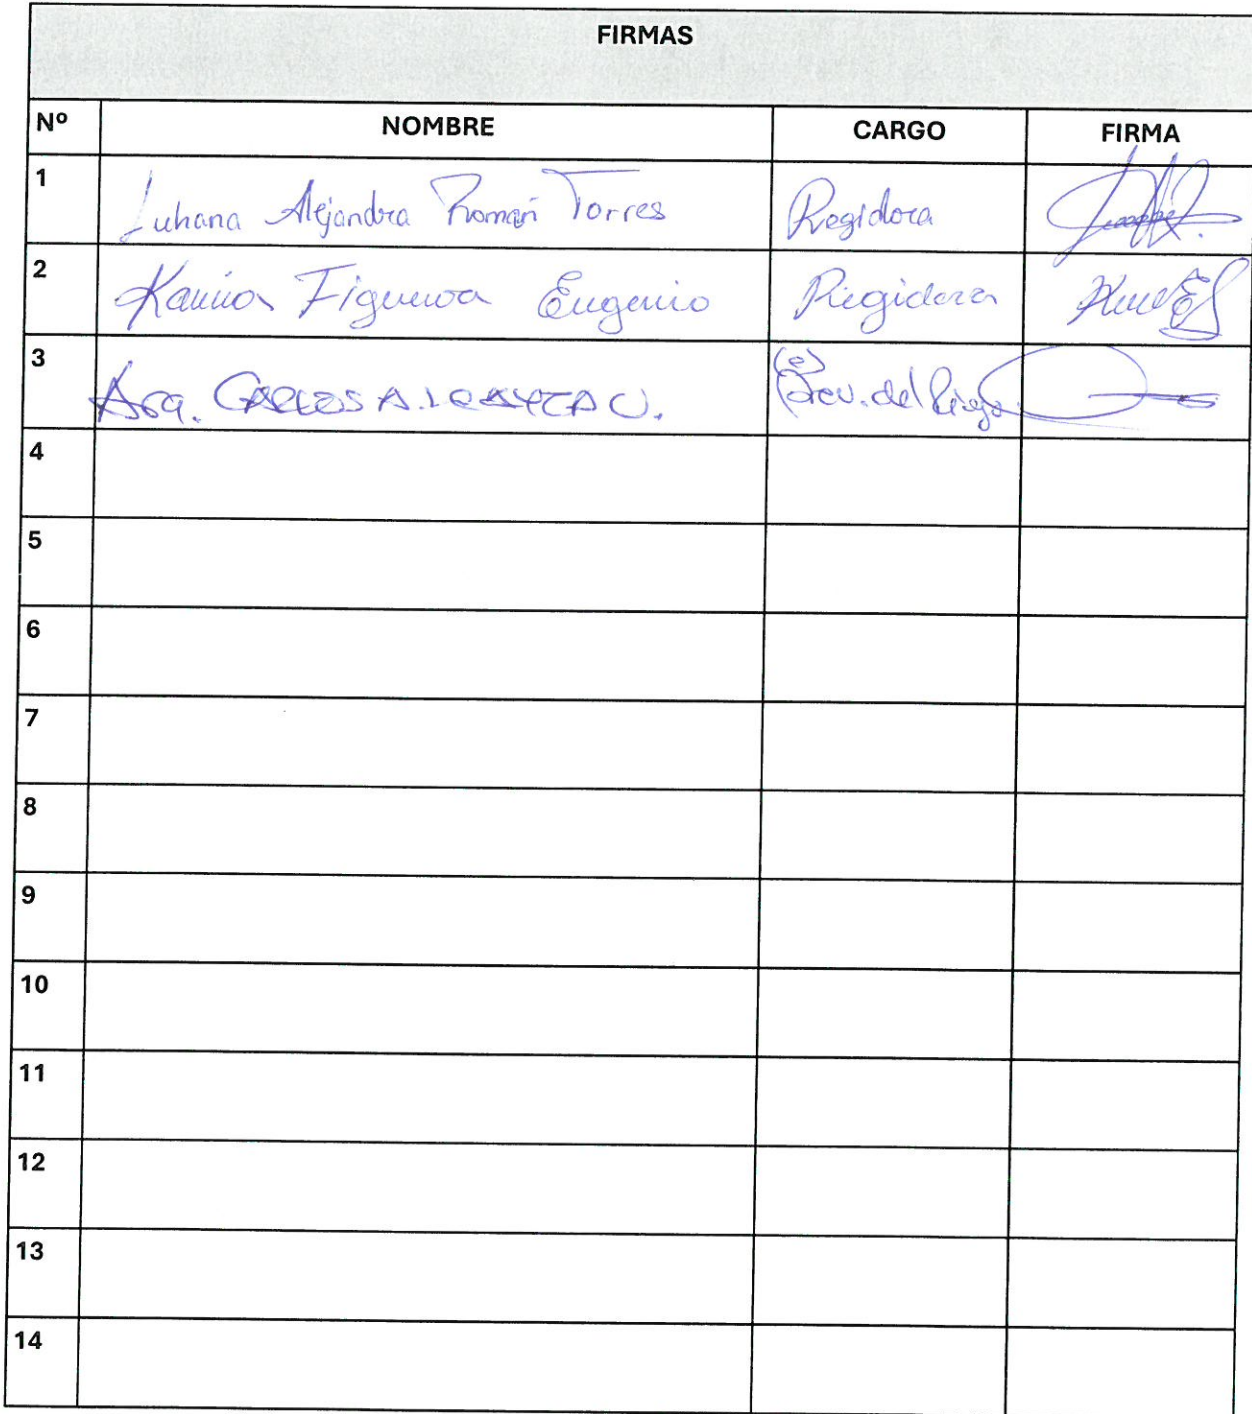 FIRMAS
Nº NOMBRE CARGO FIRMA
1 Luhana Alejandra Román Torres Regidora
2 Figueroa Eugenio Regidora
3 Arq. CARLOS A. LOAYZA U. (e) del
4
5
6
7
8
9
10
11
12
13
14